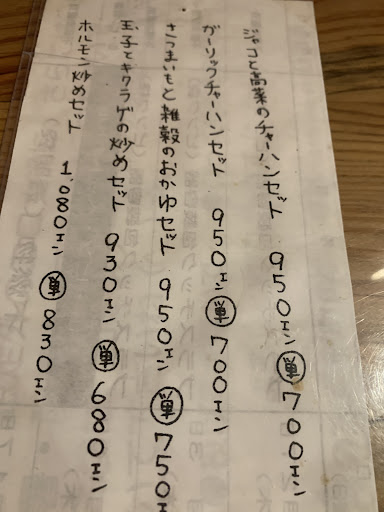 ジャコと高菜のチャーハンセット 950エン 単 700エン
ガーリックチャーハンセット 950エン 単 700エン
さつまいもと雑穀のおかゆセット 950エン 単 750エン
玉子とキクラゲの炒めセット 930エン 単 680エン
ホルモン炒めセット 1,080エン 単 830エン